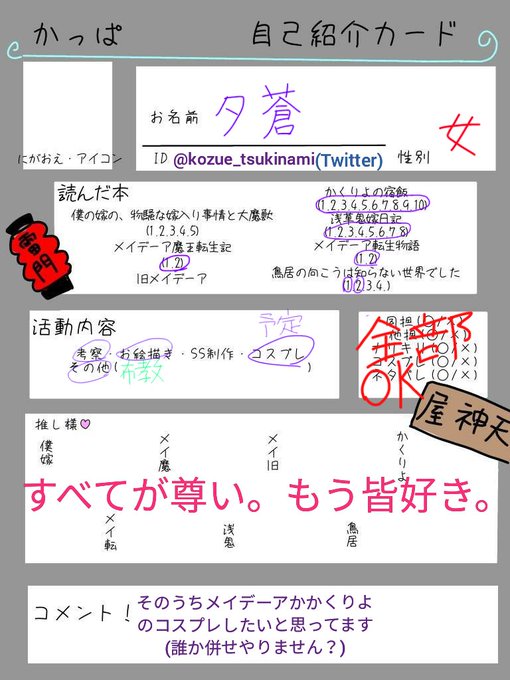 かっぱ 自己紹介カード
お名前 夕蒼
にがおえ・アイコン
ID @kozue_tsukinami(Twitter) 性別 女
読んだ本
僕の嫁の、物騒な嫁入り事情と大魔獣
(1.2.3.4.5)
メイデーア魔王転生記
(1.2)
旧メイデーア
かくりよの宿飯
(1.2.3.4.5.6.7.8.9.10)
浅草鬼嫁日記
(1.2.3.4.5.6.7.8)
メイデーア転生物語
(1.2)
鳥居の向こうは知らない世界でした
(1.2.3.4.)
雷門
活動内容
予定
考察・お絵描き・SS制作・コスプレ
その他(布教)
同担(○/×)
他担(○/×)
コスプレ(○/×)
ネタバレ(○/×)
全部OK
天神屋
推し様♡
僕嫁
メイ魔
メイ旧
かくりよ
すべてが尊い。もう皆好き。
メイ転
浅鬼
鳥居
コメント！
そのうちメイデーアかかくりよ
のコスプレしたいと思ってます
(誰か併せやりません？)